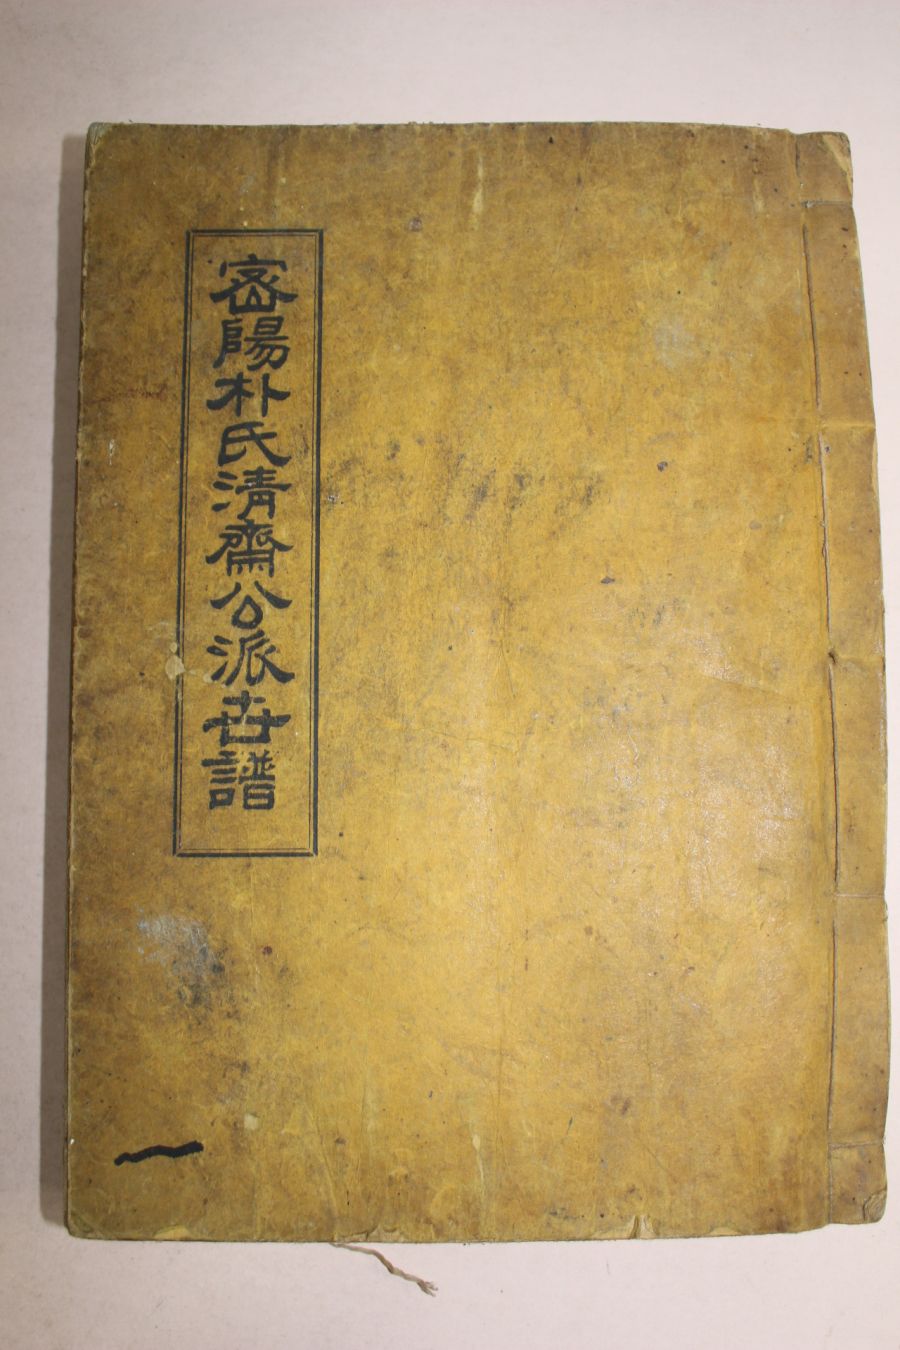 密陽朴氏清齋公派世譜
一